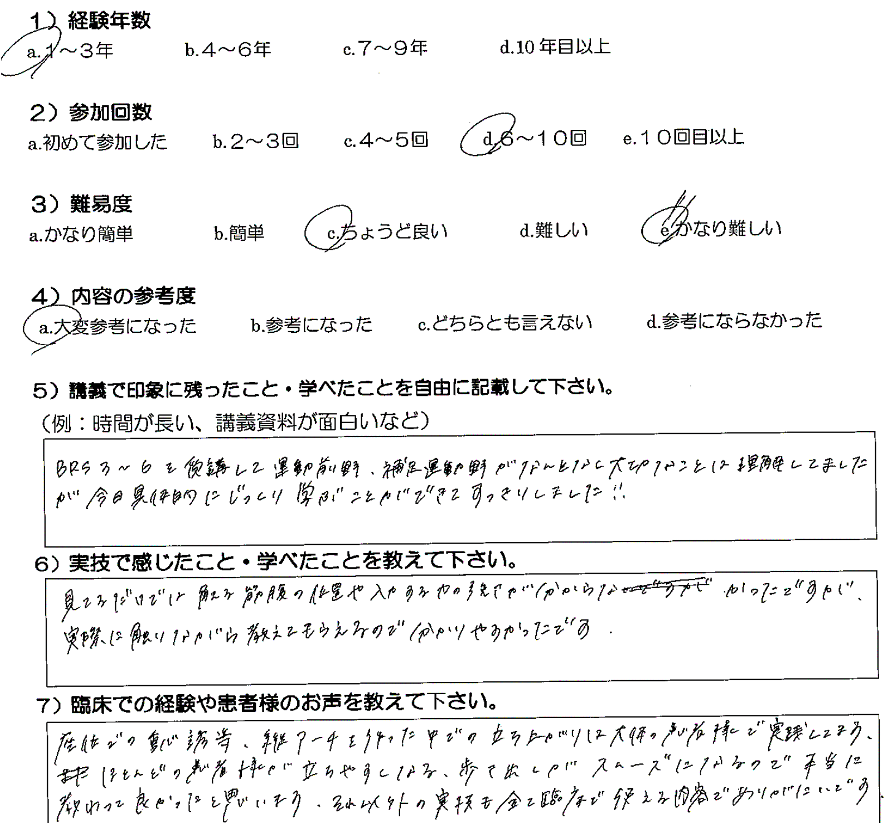 1）経験年数
a.1～3年 b.4～6年 c.7～9年 d.10年目以上
2）参加回数
a.初めて参加した b.2～3回 c.4～5回 d.6～10回 e.10回目以上
3）難易度
a.かなり簡単 b.簡単 c.ちょうど良い d.難しい e.かなり難しい
4）内容の参考度
a.大変参考になった b.参考になった c.どちらとも言えない d.参考にならなかった
5）講義で印象に残ったこと・学べたことを自由に記載して下さい。
（例：時間が長い、講義資料が面白いなど）
BRS3～6を受講して運動前野、補足運動野がなんとなく大切なことは理解してました
が今日具体的にじっくり学ぶことができてすっきりしました!!
6）実技で感じたこと・学べたことを教えて下さい。
見てるだけでは触る筋腹の位置や入力する やり方が分からなかったですが、
実際に触りながら教えてもらえるので分かりやすかったです.
7）臨床での経験や患者様のお声を教えて下さい。
座位での重心誘導、縦アーチを作った中での立ち上がりは大体の患者様で実践してます、
ほとんどの患者様が立ちやすくなる、歩き出しがスムーズになるので本当に
教わって良かったと思います、それ以外の実技も全て臨床で使える内容でありがたいです